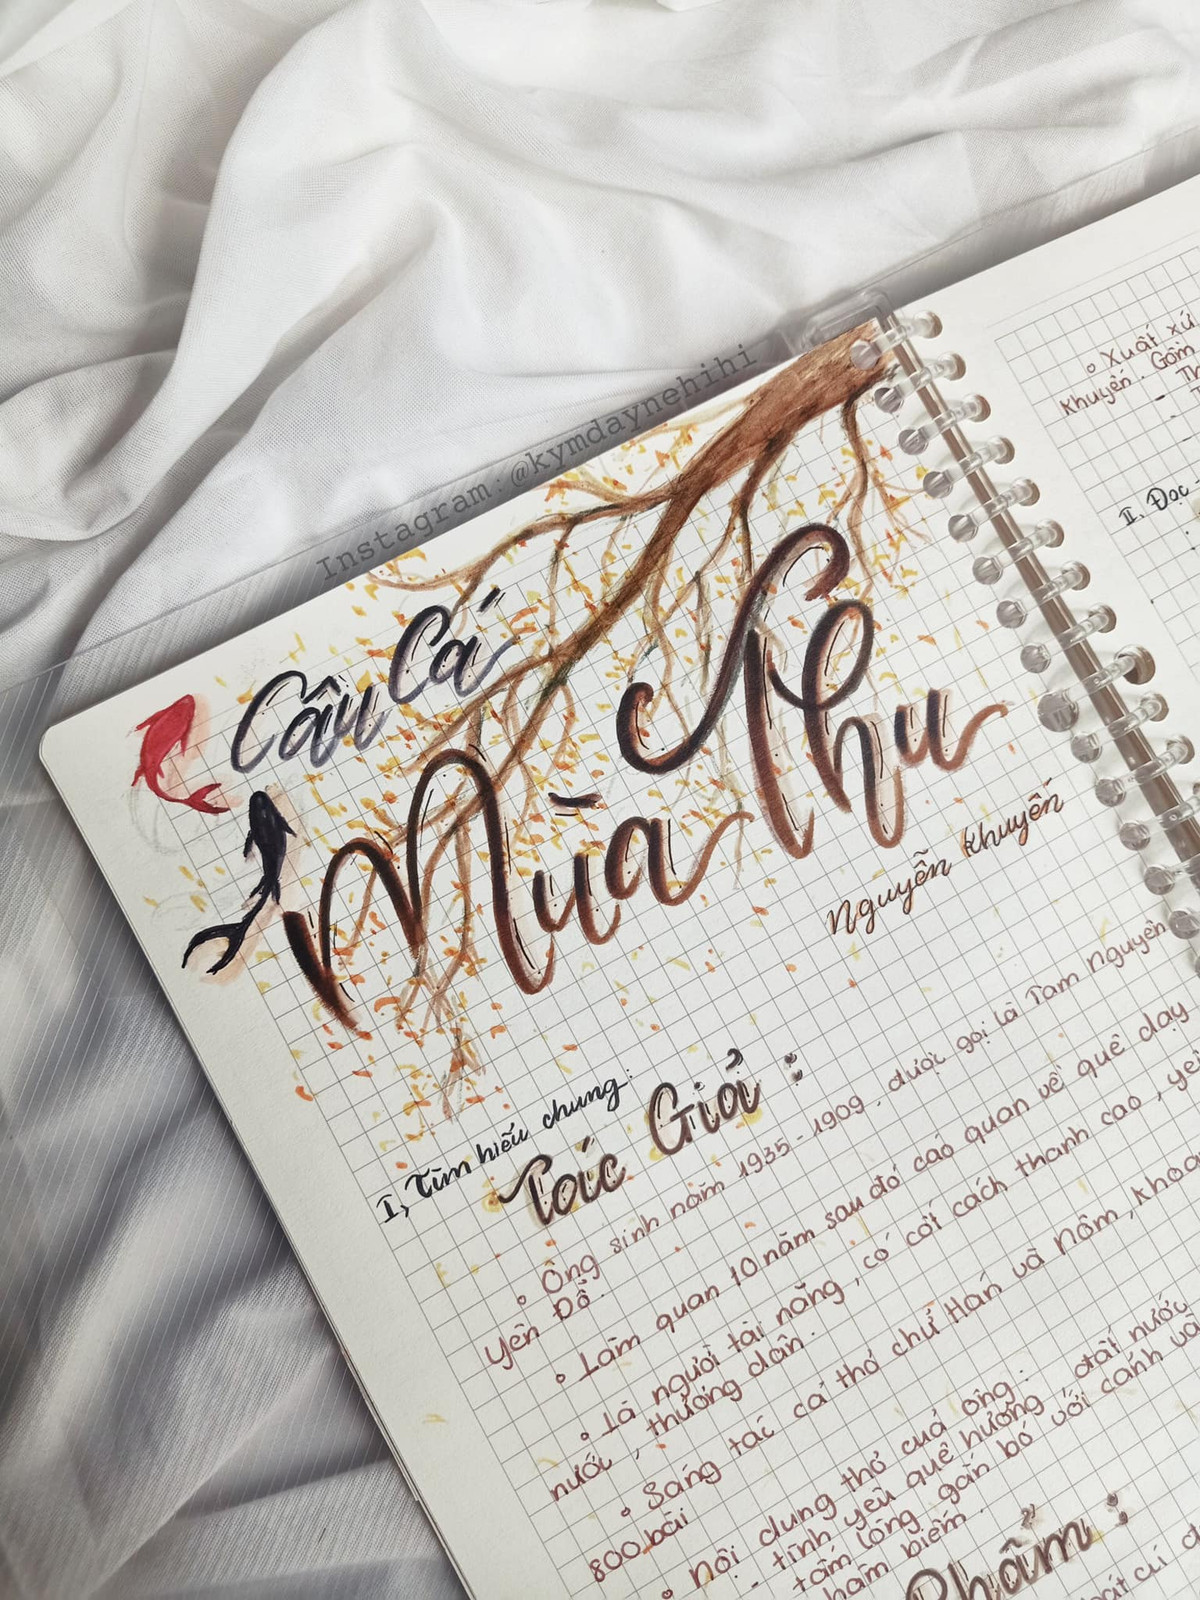 Instagram: @kymdaynehihi
Câu Cá
Mùa Thu
Nguyễn Khuyến
I, Tìm hiểu chung:
Tác Giả:
Ông sinh năm 1935-1909, được gọi là Tam Nguyên
Yên Đổ.
Làm quan 10 năm sau đó cáo quan về quê dạy
Là người tài năng, có cốt cách thanh cao, yêu
nước, thương dân.
Sáng tác cả thơ chữ Hán và Nôm, khoảng
800 bài
Nội dung thơ của ông:
- tình yêu quê hương đất nước
tấm lòng gắn bó với cảnh và
hầm biếm.
Phẩm:
Xuất xứ
Khuyến. Gồm
II, Đọc-